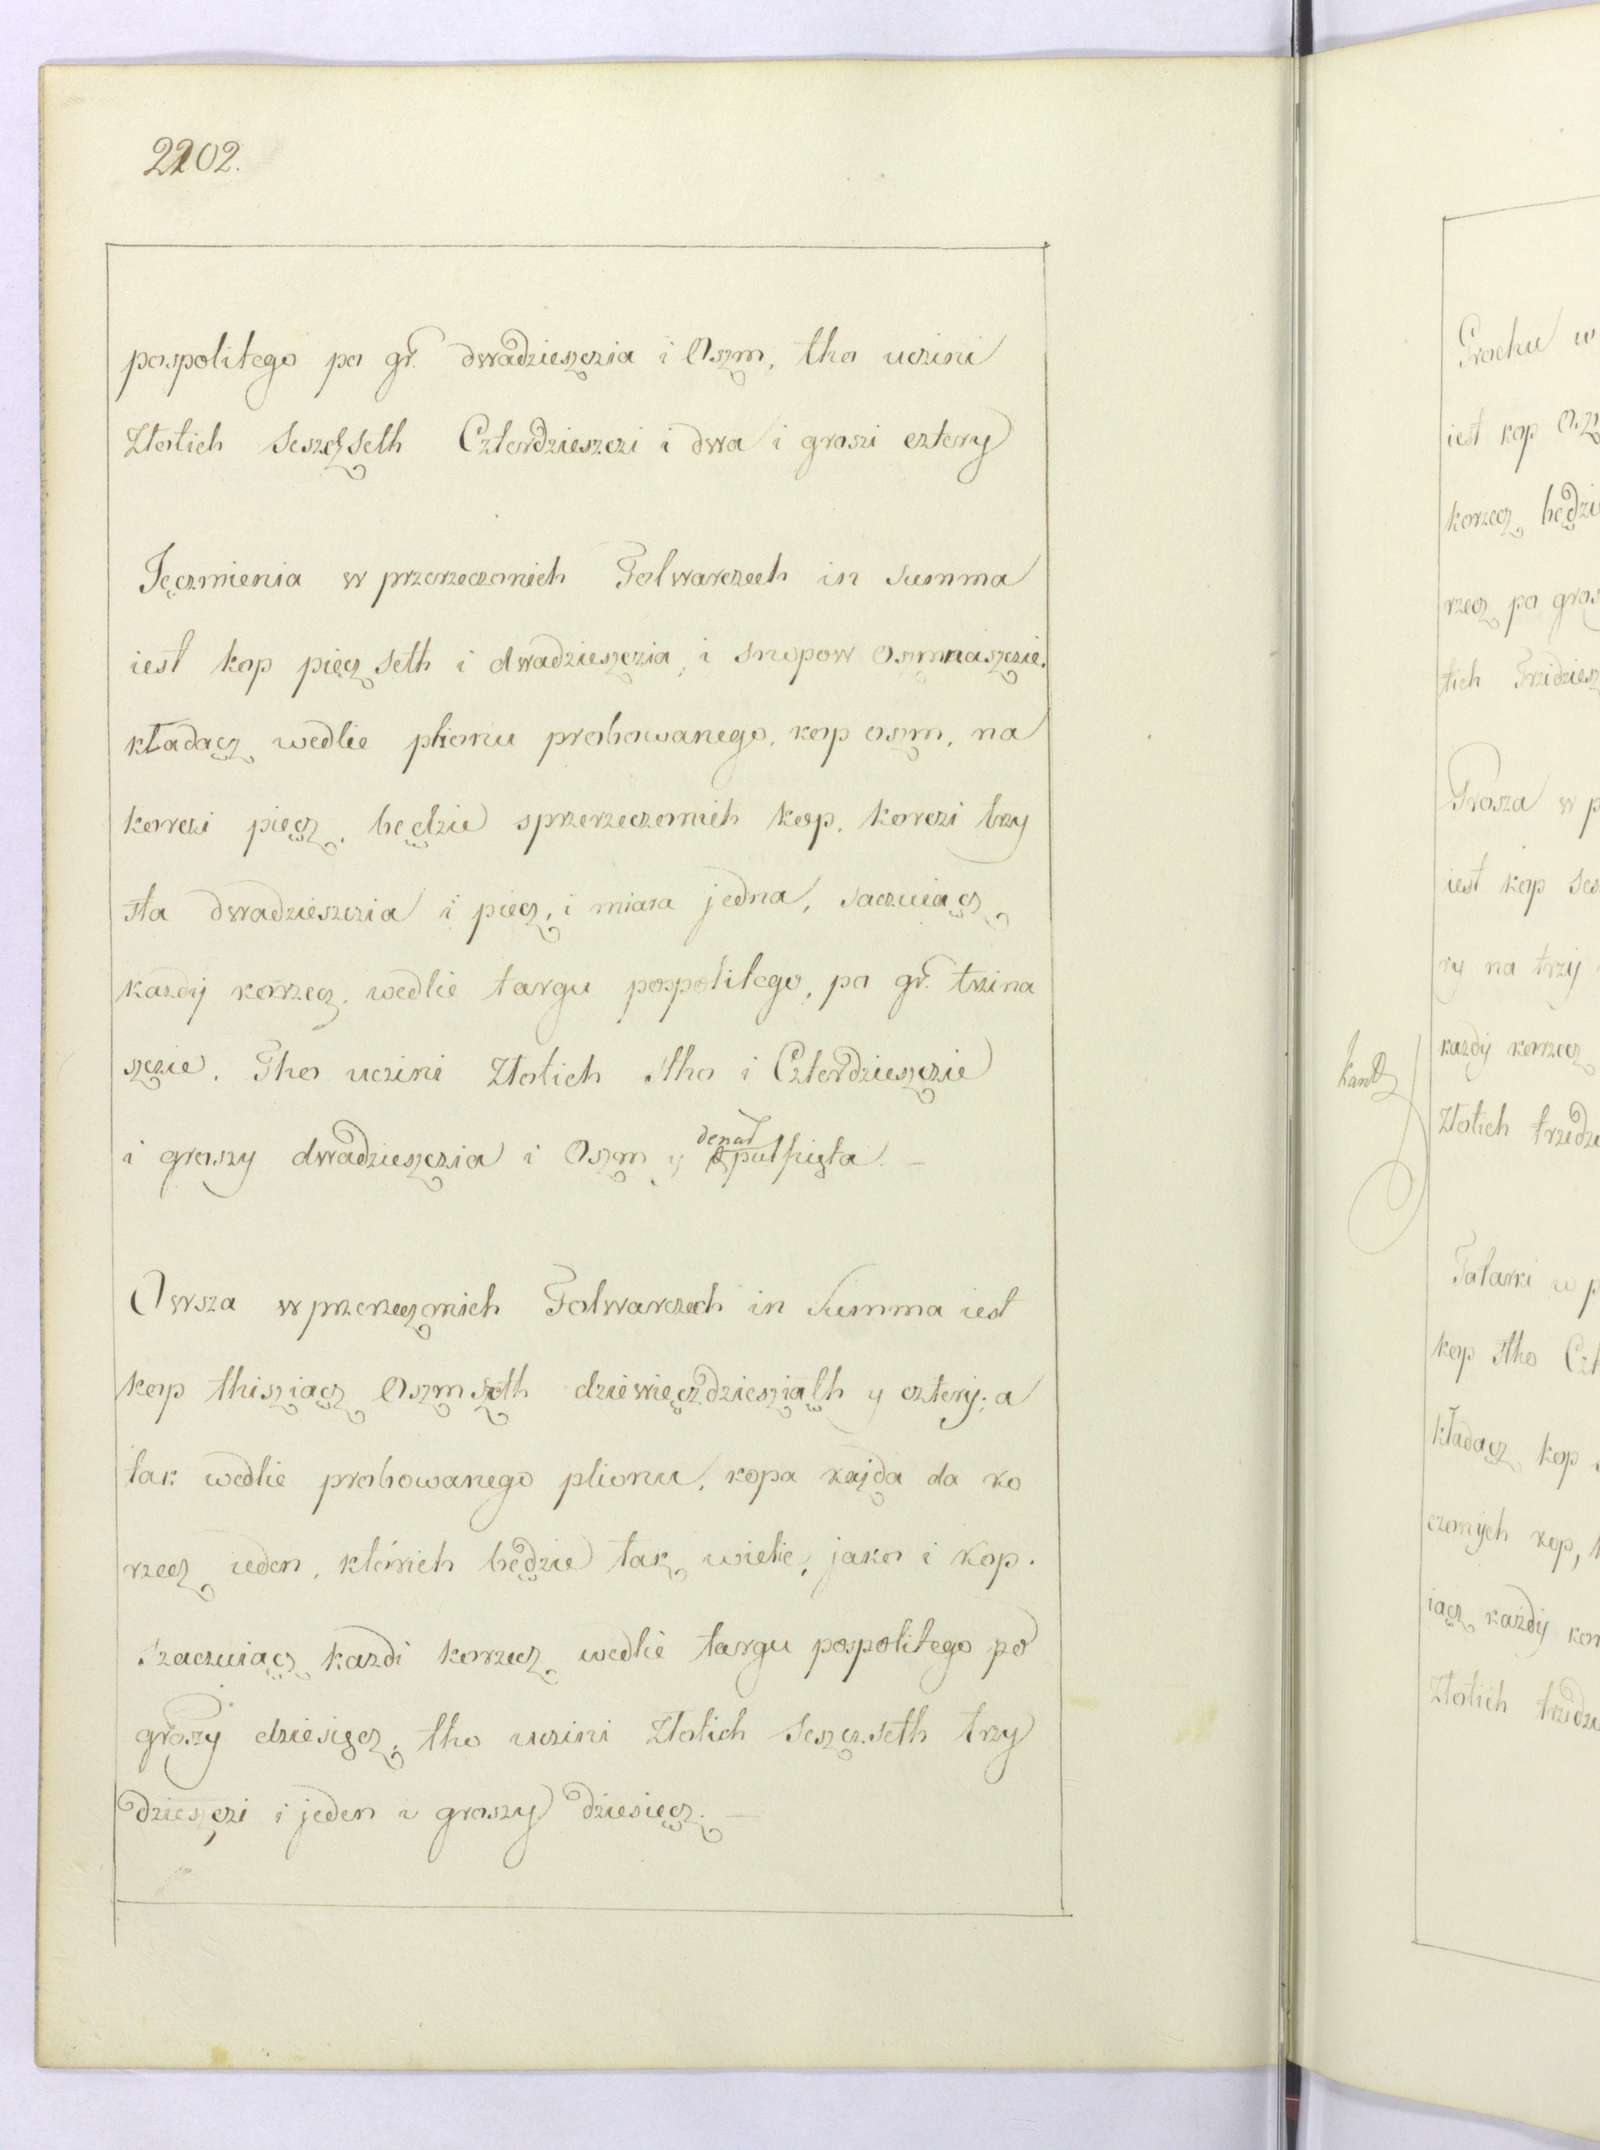 2202.
pospolitego po gr. dwadzieszczia i Oszm, tho uczini
Złotich Seszcz Seth Czterdzieszczi i dwa i groszi cztery
Jęczmienia w przerzeczonich Folwarczech in Summa
iest kop pięcz seth i dwadzieszczia, i snopow oszmnaszczie.
kładącz wedlie plionu probowanego, kop oszm, na
korczi pięcz, będzie sprzerzeczonich kop, korczi trzy
sta dwadzieszczia i pięcz, i miara jedna, saczuiącz
kazdy korzecz, wedlie targu pospolitego, po gr. trzina
szczie. Tho uczini Złotich stho i Czterdzieszczie
i groszy dwadzieszczia i Oszm y denar pułpięta. —
Owsza w przerzeczonich Folwarczech in Summa iest
kop thisziącz Oszmszeth dziewięczdziesziąth y cztery; a
tak wedlie probowanego plionu, kopa kazda da ko
rzecz ieden, których będzie tak wielie, jako i kop.
Szaczuiącz kazdi korzecz wedlie targu pospolitego po
groszy dziesięcz, tho uczini Złotich Seszcz.seth trzy
dzieszczi i jeden i groszy dziesięcz. —
Grochu w
iest kop
korzecz będzi
rzecz po gros
tich Trzidziesz
Prosza w p
iest kop Ses
ry na trzy
kazdy korzecz
Złotich trzidzi
Tatarki w p
kop stho Czt
kładącz kop
czonych kop,
iącz kazdy kor
Złotich trzidzi